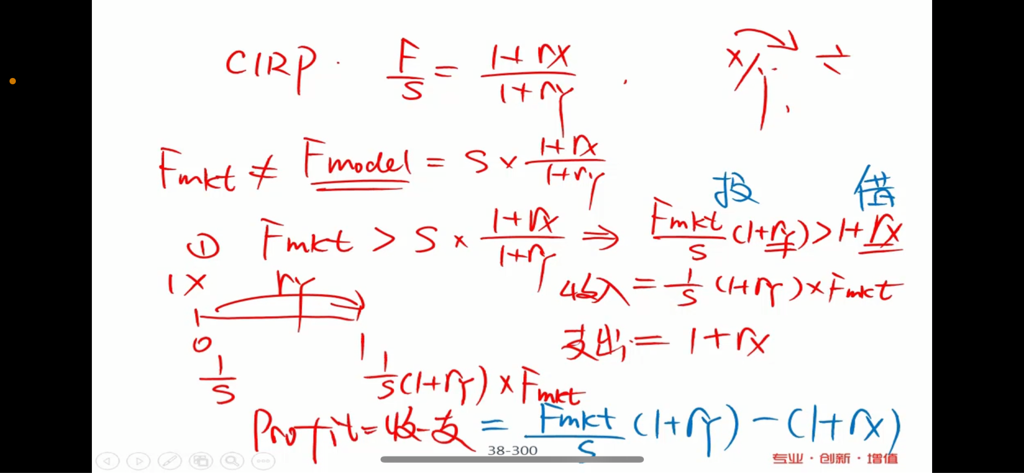 CIRP. F/S = (1+rX)/(1+rY) . X/Y ⇌
Fmkt ≠ Fmodel = S × (1+rX)/(1+rY)
投 借
① Fmkt > S × (1+rX)/(1+rY) ⇒ Fmkt/S (1+rY) > 1+rX
1X rY 收入 = 1/S (1+rY) × Fmkt
0 1 支出 = 1+rX
1/S 1/S (1+rY) × Fmkt
Profit = 收-支 = Fmkt/S (1+rY) - (1+rX)
38-300
专业·创新·增值